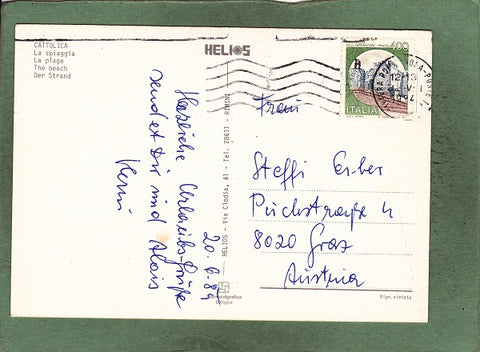 CATTOLICA
La spiaggia
La plage
The beach
Der Strand
HELIOS
HELIOS - Via Clodia, 41 - Tel. 28611 - RIMINI
400
ITALIA
20.6.84
Herzliche Urlaubs-Grüße
sendet Dir und Alois
Herui
Frau
Steffi Erber
Puchstraße 4
8020 Graz
Austria
Ripr. vietata